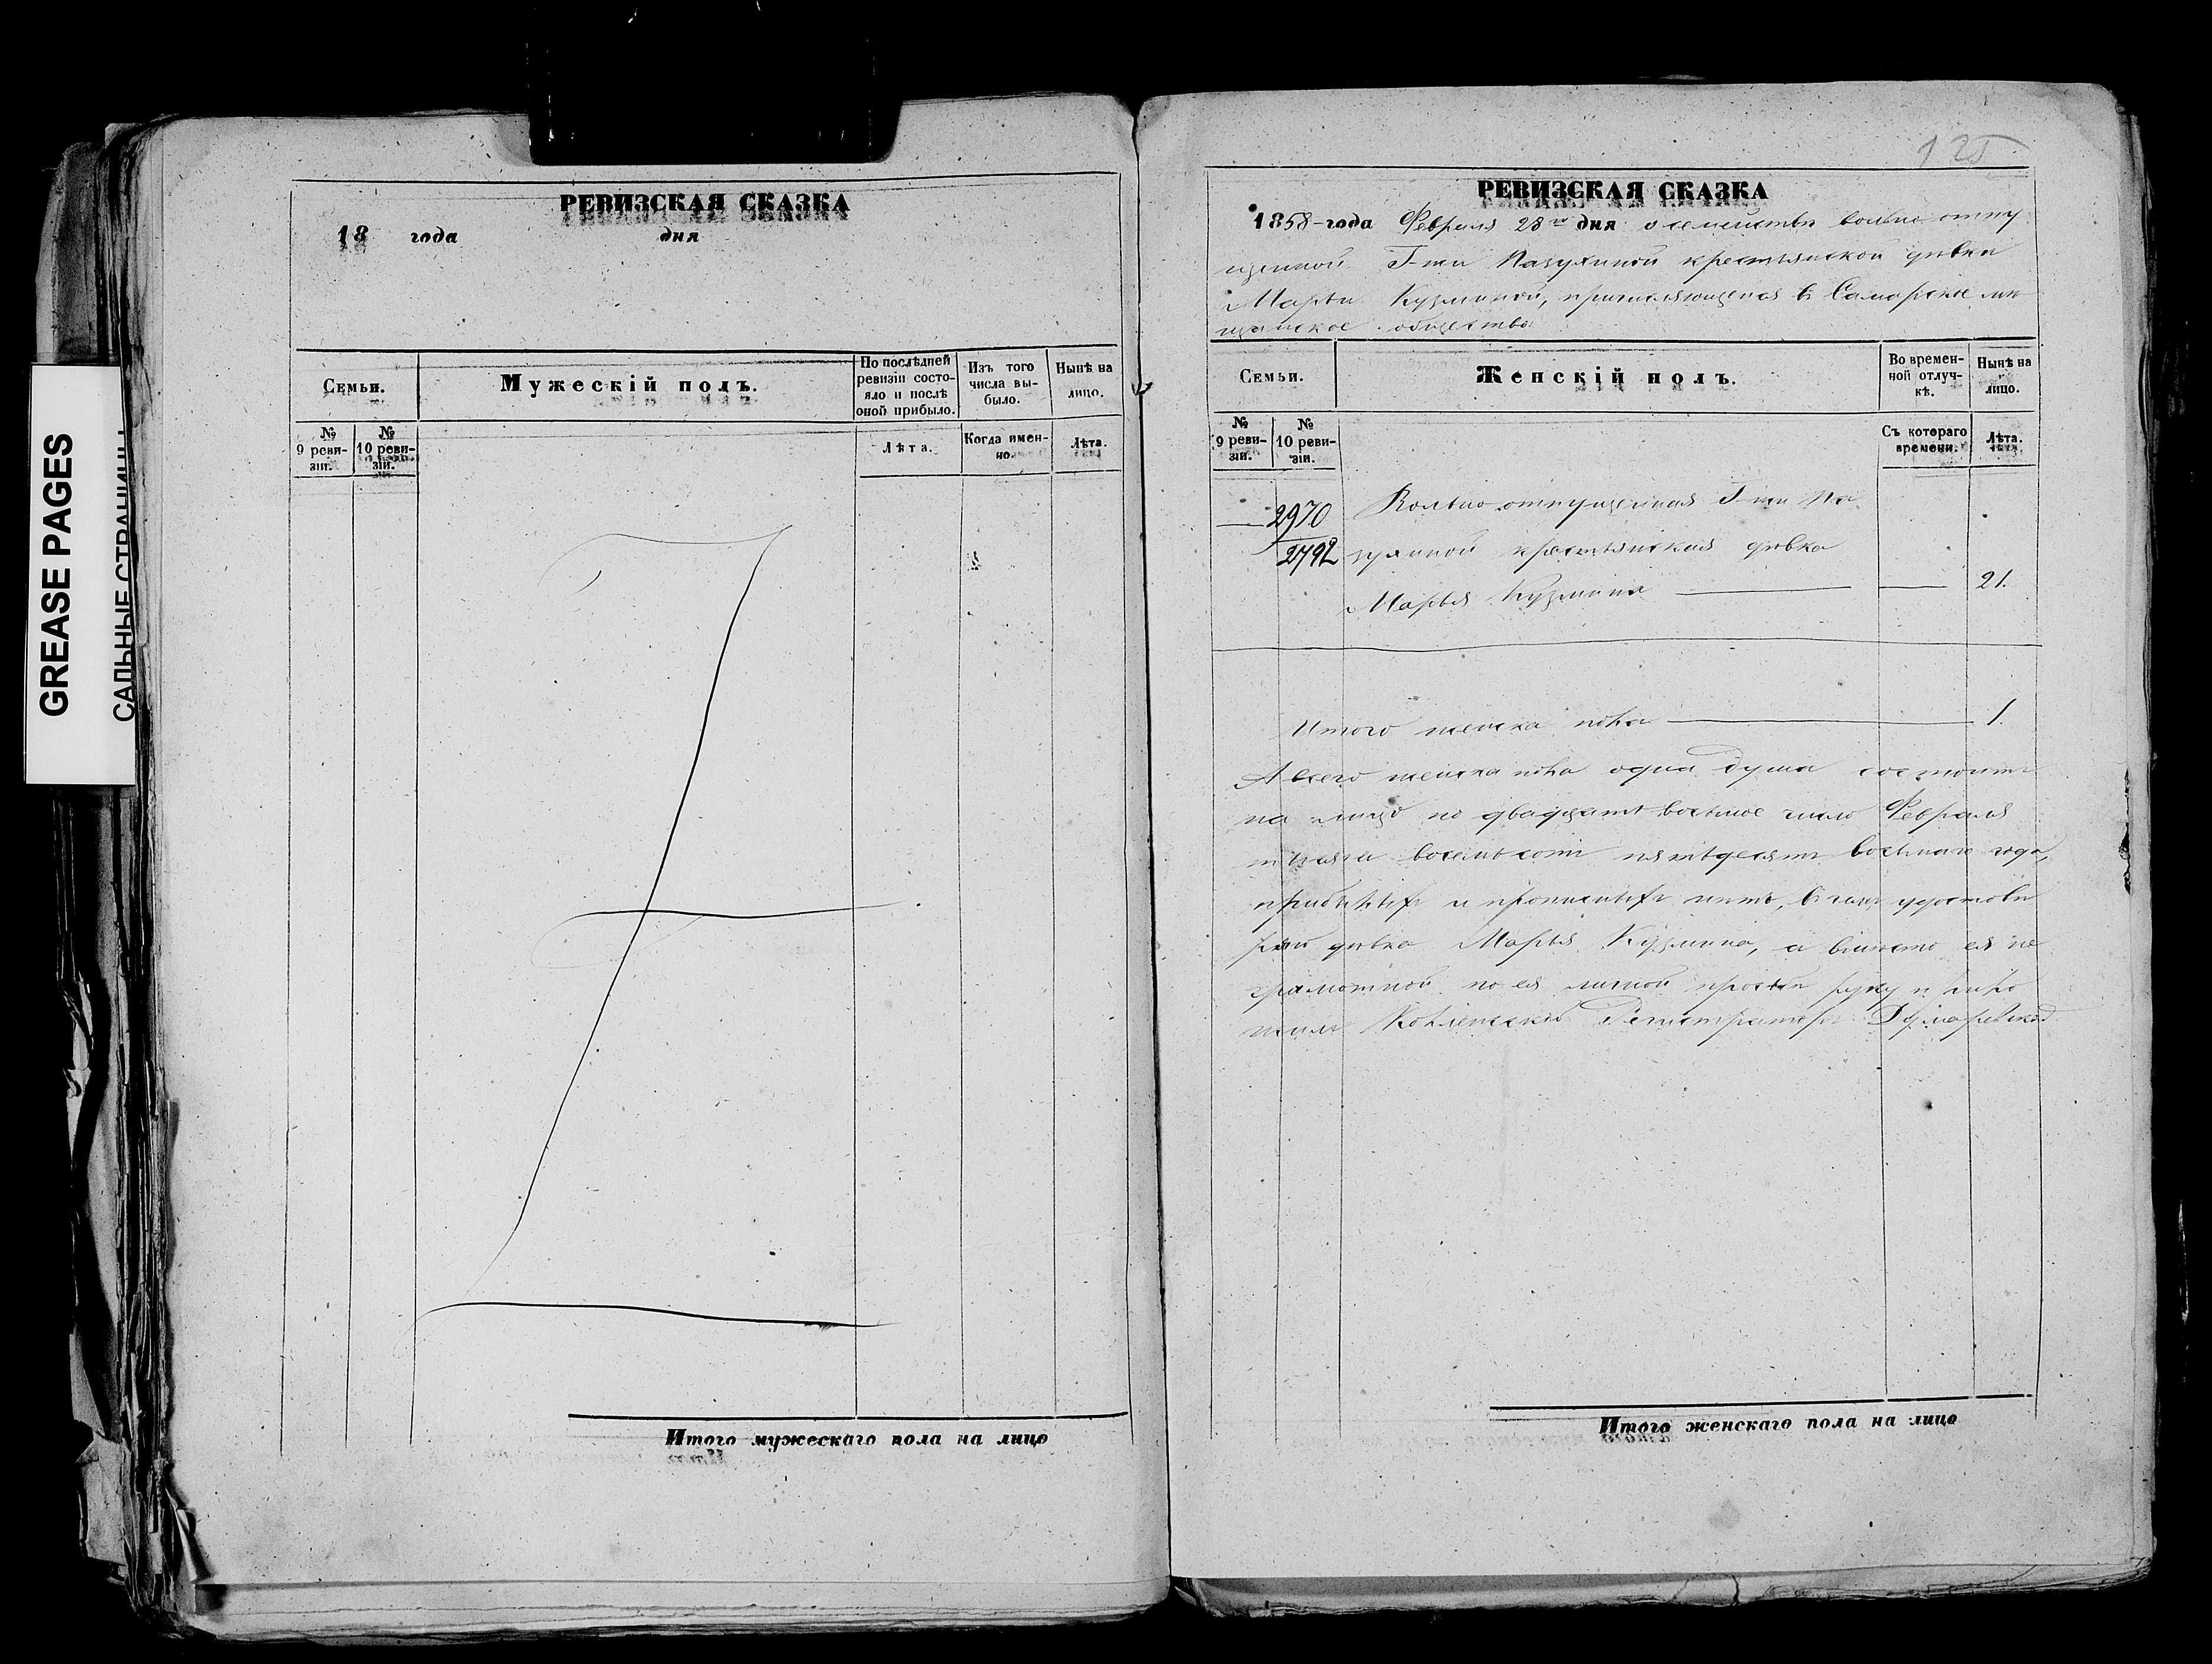 GREASE PAGES
САЛЬНЫЕ СТРАНИЦЫ
РЕВИЗСКАЯ СКАЗКА
18 года дня
Семьи.
Мужескій полъ.
По послѣдней ревизіи состояло и послѣ оной прибыло.
Изъ того числа выбыло.
Нынѣ на лицо.
№ 9 ревизіи.
№ 10 ревизіи.
Лѣта.
Когда именно.
Лѣта.
Итого мужескаго пола на лицо
125
РЕВИЗСКАЯ СКАЗКА
1858 года Февраля 28го дня о семействѣ вольно отпу
щенной Г-жи Пазухиной крестьянской дѣвки
Марьи Кузминой, причисляющейся въ Самарское мѣ
щанское общество.
Семьи.
Женскій полъ.
Во временной отлучкѣ.
Нынѣ на лицо.
№ 9 ревизіи.
№ 10 ревизіи.
Съ котораго времени.
Лѣта.
2970 Вольно отпущенная Г-жи Па
2792 зухиной крестьянская дѣвка
Марья Кузмина 21.
Итого женска пола 1.
А всего женска пола одна душа состоитъ
на лицо по двадцать восьмое число Февраля
тысяча восемьсотъ пятьдесятъ восьмаго года,
прибылыхъ и прописныхъ нѣтъ, въ чемъ удостовѣ
ряю дѣвка Марья Кузмина, а вмѣсто ея не
грамотной по ея личной прозьбѣ руку прило
жилъ Коллежскій Регистраторъ
Итого женскаго пола на лицо